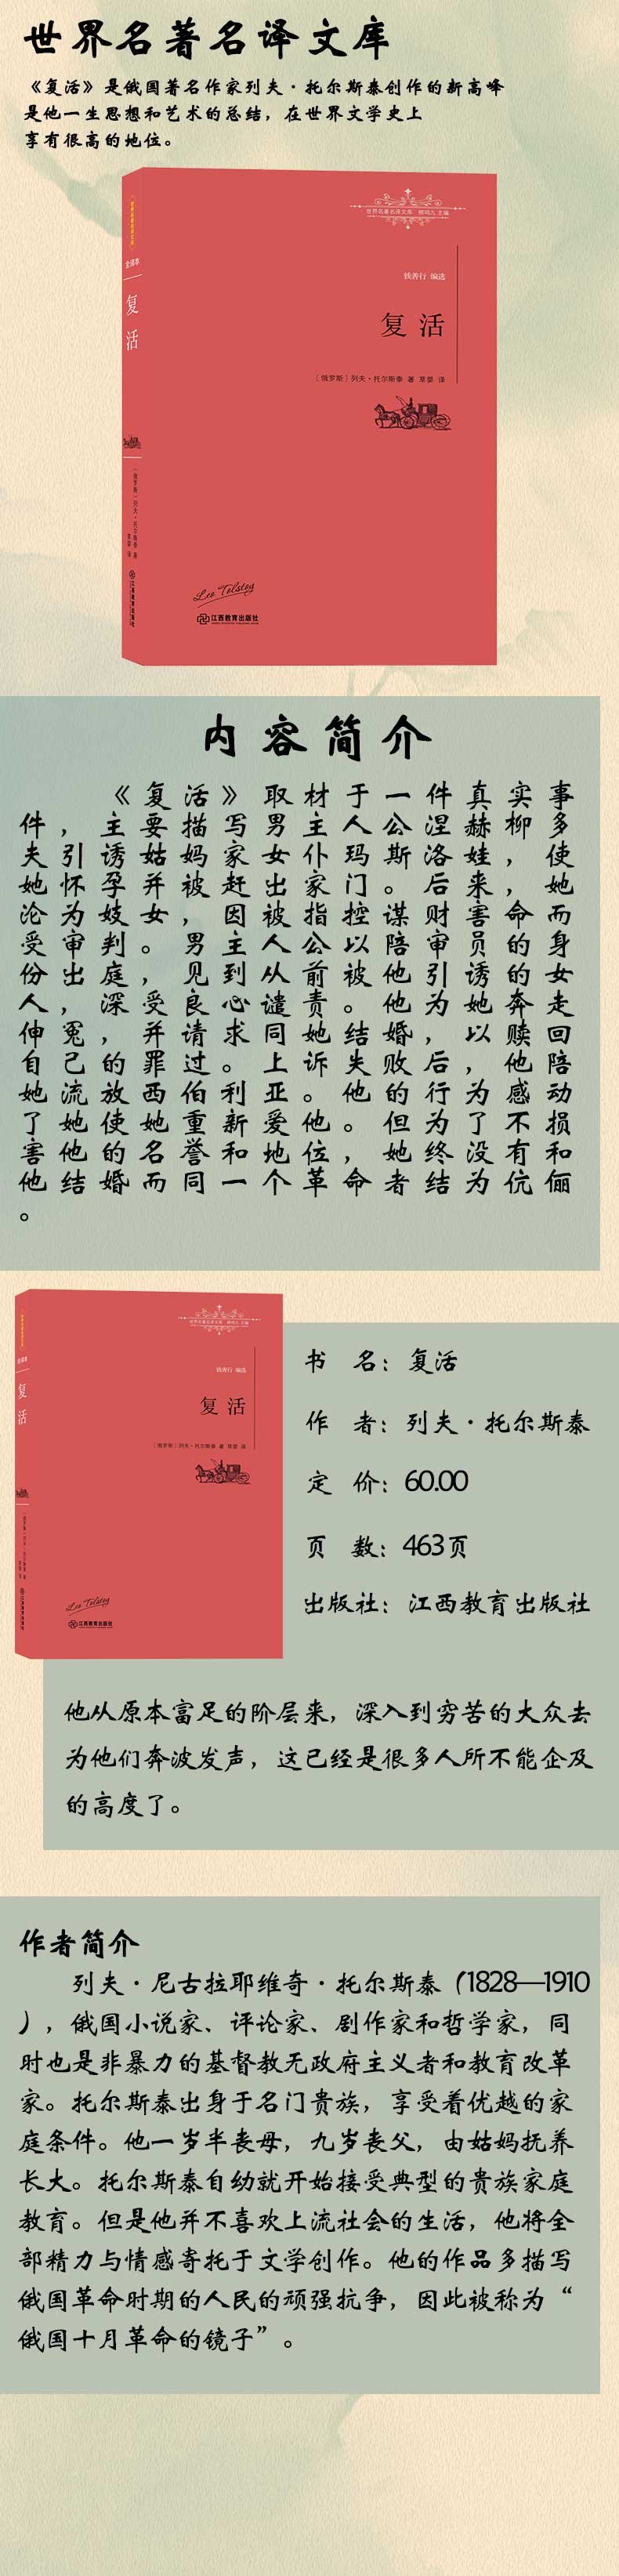 世界名著名译文库
《复活》是俄国著名作家列夫·托尔斯泰创作的新高峰
是他一生思想和艺术的总结，在世界文学史上
享有很高的地位。
世界名著名译文库 柳鸣九 主编
钱善行 编选
复活
［俄罗斯］列夫·托尔斯泰 著 草婴 译
Leo Tolstoy
江西教育出版社
世界名著名译文库
全译本
复活
［俄罗斯］列夫·托尔斯泰 著
草婴 译
江西教育出版社
内容简介
《复活》取材于一件真实事
件，主要描写男主人公涅赫柳多
夫引诱姑妈家女仆玛斯洛娃，使
她怀孕并被赶出家门。后来，她
沦为妓女，因被指控谋财害命而
受审判。男主人公以陪审员的身
份出庭，见到从前被他引诱的女
人，深受良心谴责。他为她奔走
伸冤，并请求同她结婚，以赎回
自己的罪过。上诉失败后，他陪
她流放西伯利亚。他的行为感动
了她使她重新爱他。但为了不损
害他的名誉和地位，她终没有和
他结婚而同一个革命者结为伉俪
。
世界名著名译文库 柳鸣九 主编
钱善行 编选
复活
［俄罗斯］列夫·托尔斯泰 著 草婴 译
Leo Tolstoy
江西教育出版社
世界名著名译文库
全译本
复活
［俄罗斯］列夫·托尔斯泰 著
草婴 译
江西教育出版社
书 名：复活
作 者：列夫·托尔斯泰
定 价：60.00
页 数：463页
出版社：江西教育出版社
他从原本富足的阶层来，深入到穷苦的大众去
为他们奔波发声，这已经是很多人所不能企及
的高度了。
作者简介
列夫·尼古拉耶维奇·托尔斯泰（1828—1910
），俄国小说家、评论家、剧作家和哲学家，同
时也是非暴力的基督教无政府主义者和教育改革
家。托尔斯泰出身于名门贵族，享受着优越的家
庭条件。他一岁半丧母，九岁丧父，由姑妈抚养
长大。托尔斯泰自幼就开始接受典型的贵族家庭
教育。但是他并不喜欢上流社会的生活，他将全
部精力与情感寄托于文学创作。他的作品多描写
俄国革命时期的人民的顽强抗争，因此被称为“
俄国十月革命的镜子”。